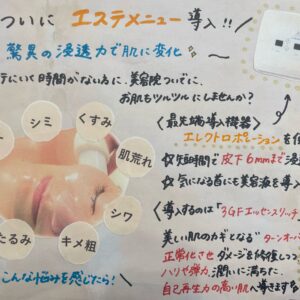 ついに エステメニュー 導入!!
驚異の浸透力で肌に変化
テにいく時間がない方に、美容院ついでに、
お肌もツルツルにしませんか?
シミ
くすみ
肌荒れ
シワ
キメ粗
たるみ
こんな悩みを感じたら!
〈最先端導入機器〉
エレクトロポレーションを使
☆短時間で皮下6mmまで浸
☆気になる首にも美容液を導入
〈導入するのは"3GFエッセンスリッチ
美しい肌のカギとなる"ターンオーバ
正常化させ ダメージを修復しつつ
ハリや弾力、潤いに満ちた、
自己再生力の高い肌へ導きます